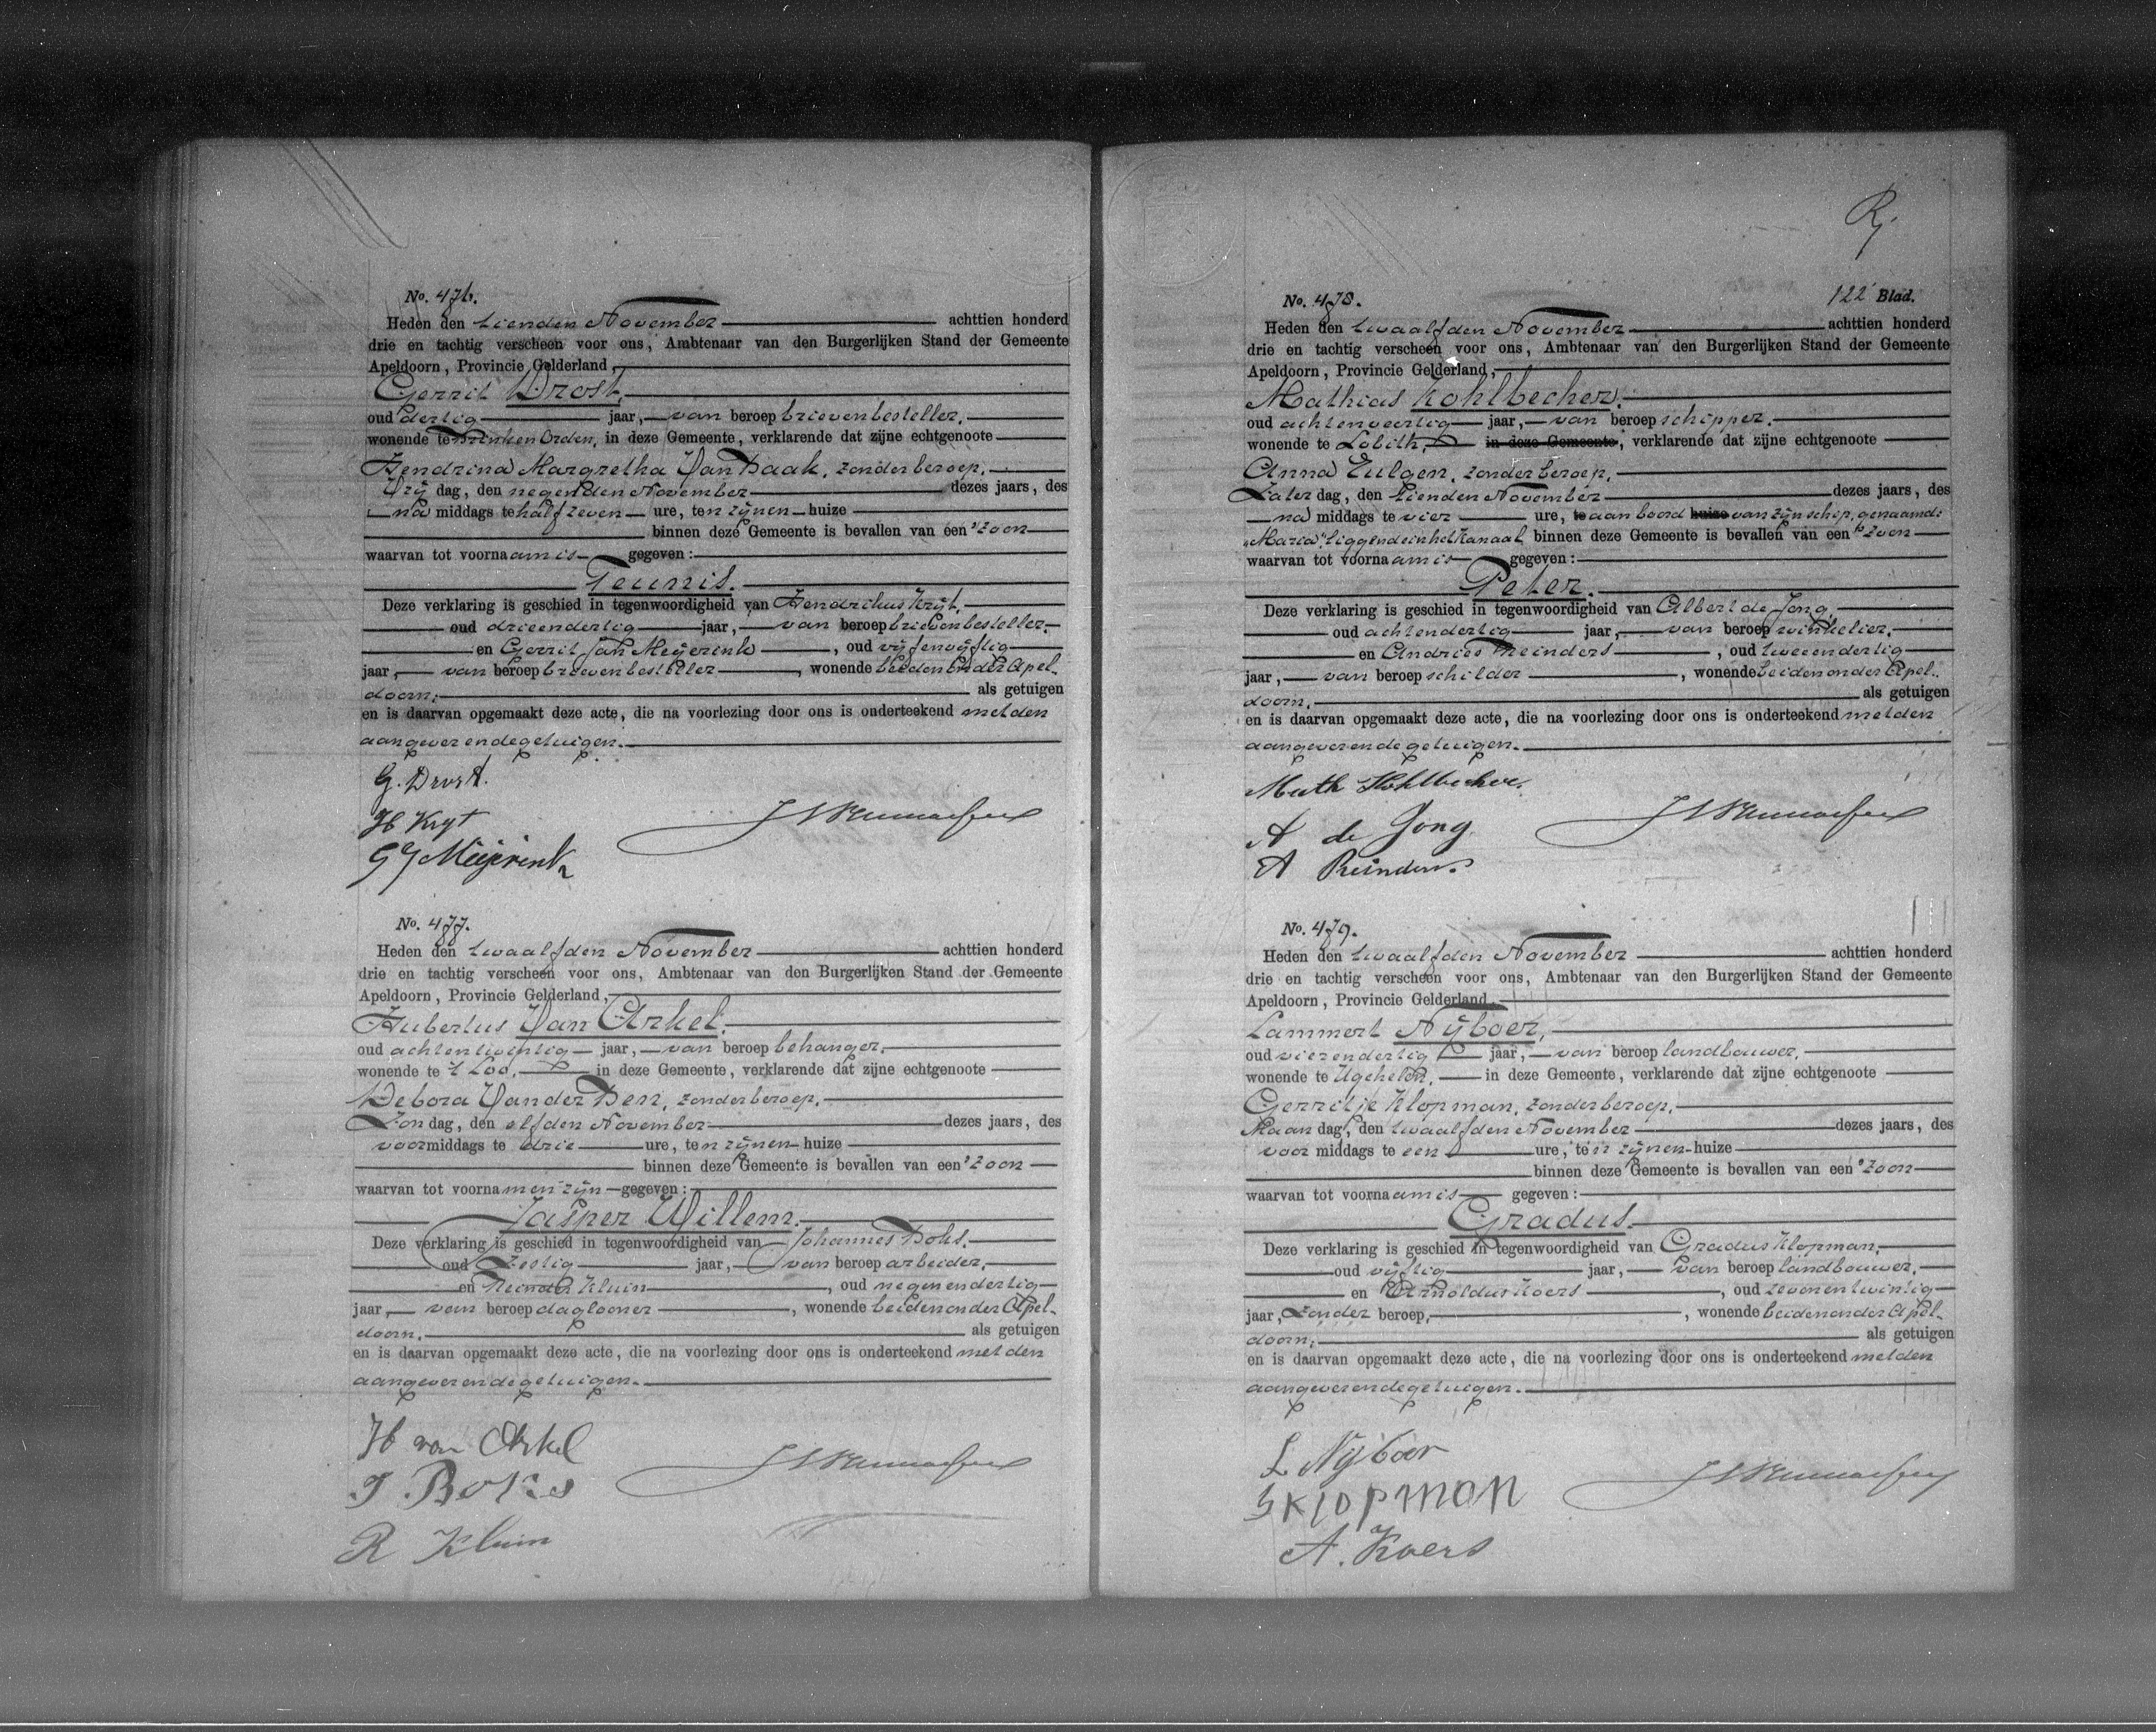 No. 476.
Heden den tienden November achttien honderd
drie en tachtig verscheen voor ons, Ambtenaar van den Burgerlijken Stand der Gemeente
Apeldoorn, Provincie Gelderland,
Gerrit Drost,
oud dertig jaar, van beroep brievenbesteller,
wonende te Brinken Orden, in deze Gemeente, verklarende dat zijne echtgenoote
Hendrina Margretha Van Haak, zonder beroep,
Vrijdag, den negenden November dezes jaars, des
na middags te half zeven ure, ten zijnen huize
binnen deze Gemeente is bevallen van een zoon
waarvan tot voornaam is gegeven:
Teunis.
Deze verklaring is geschied in tegenwoordigheid van Hendrikus Krijt,
oud drieendertig jaar, van beroep brievenbesteller,
en Gerrit Jan Meijerink, oud vijfenvijftig
jaar, van beroep brievenbesteller, wonende beiden onder Apel-
doorn, als getuigen
en is daarvan opgemaakt deze acte, die na voorlezing door ons is onderteekend met den
aangever en de getuigen.
G. Drost.
H Kryt
G J Meijerink
No. 477.
Heden den twaalfden November achttien honderd
drie en tachtig verscheen voor ons, Ambtenaar van den Burgerlijken Stand der Gemeente
Apeldoorn, Provincie Gelderland,
Hubertus Van Arkel,
oud achtentwintig jaar, van beroep behanger,
wonende te 't Loo, in deze Gemeente, verklarende dat zijne echtgenoote
Debora Van der Ben, zonder beroep,
Zondag, den elfden November dezes jaars, des
voormiddags te drie ure, ten zijnen huize
binnen deze Gemeente is bevallen van een zoon
waarvan tot voornamen zijn gegeven:
Jasper Willem.
Deze verklaring is geschied in tegenwoordigheid van Johannes Boks,
oud zestig jaar, van beroep arbeider,
en Reinder Kluin, oud negenendertig
jaar, van beroep daglooner, wonende beiden onder Apel-
doorn, als getuigen
en is daarvan opgemaakt deze acte, die na voorlezing door ons is onderteekend met den
aangever en de getuigen.
H van Arkel
J. Boks
R Kluin
122 Blad.
No. 478.
Heden den twaalfden November achttien honderd
drie en tachtig verscheen voor ons, Ambtenaar van den Burgerlijken Stand der Gemeente
Apeldoorn, Provincie Gelderland,
Mathias Kohlbecher,
oud achtenveertig jaar, van beroep schipper,
wonende te Lobith, in deze Gemeente, verklarende dat zijne echtgenoote
Anna Eulgen, zonder beroep,
Zaterdag, den tienden November dezes jaars, des
na middags te vier ure, te aan boord huize van zijn schip, genaamd:
"Maria", liggende in het Kanaal binnen deze Gemeente is bevallen van een zoon
waarvan tot voornaam is gegeven:
Peter.
Deze verklaring is geschied in tegenwoordigheid van Albert de Jong,
oud achtendertig jaar, van beroep winkelier,
en Andries Reinders, oud tweeendertig
jaar, van beroep schilder, wonende beiden onder Apel-
doorn, als getuigen
en is daarvan opgemaakt deze acte, die na voorlezing door ons is onderteekend met den
aangever en de getuigen.
Math Kohlbecher.
A de Jong
A Reinders.
No. 479.
Heden den twaalfden November achttien honderd
drie en tachtig verscheen voor ons, Ambtenaar van den Burgerlijken Stand der Gemeente
Apeldoorn, Provincie Gelderland,
Lammert Nijboer,
oud vierendertig jaar, van beroep landbouwer,
wonende te Ugchelen, in deze Gemeente, verklarende dat zijne echtgenoote
Gerritje Klopman, zonder beroep,
Maandag, den twaalfden November dezes jaars, des
voor middags te een ure, ten zijnen huize
binnen deze Gemeente is bevallen van een zoon
waarvan tot voornaam is gegeven:
Gradus.
Deze verklaring is geschied in tegenwoordigheid van Gradus Klopman,
oud vijftig jaar, van beroep landbouwer,
en Arnoldus Koers, oud zevenentwintig
jaar, zonder beroep, wonende beiden onder Apel-
doorn, als getuigen
en is daarvan opgemaakt deze acte, die na voorlezing door ons is onderteekend met den
aangever en de getuigen.
L Nijboer
G Klopman
A. Koers